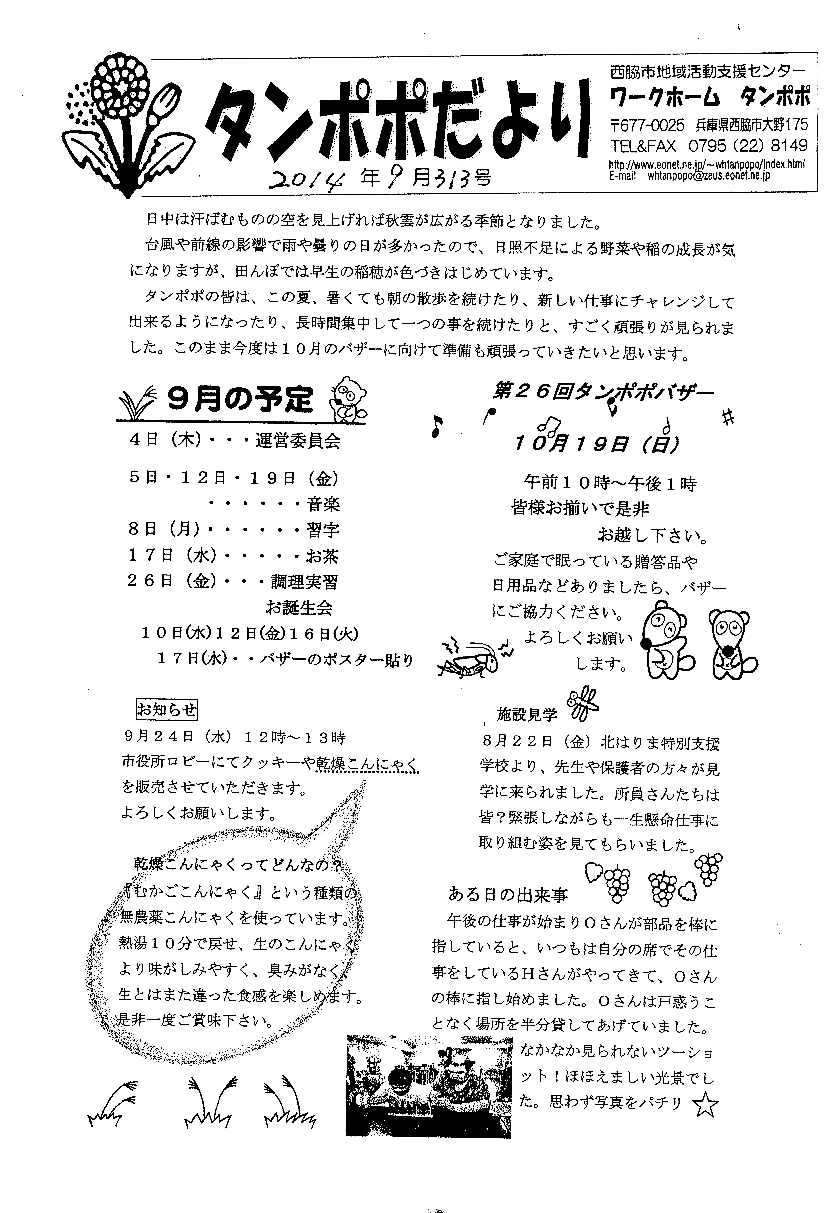 タンポポだより
2014年9月313号
西脇市地域活動支援センター
ワークホーム　タンポポ
〒677-0025　兵庫県西脇市大野175
TEL&FAX　0795（22）8149
http://www.eonet.ne.jp/~whtanpopo/index.html
E-mail　whtanpopo@zeus.eonet.ne.jp
日中は汗ばむものの空を見上げれば秋雲が広がる季節となりました。
台風や前線の影響で雨や曇りの日が多かったので、日照不足による野菜や稲の成長が気
になりますが、田んぼでは早生の稲穂が色づきはじめています。
タンポポの皆は、この夏、暑くても朝の散歩を続けたり、新しい仕事にチャレンジして
出来るようになったり、長時間集中して一つの事を続けたりと、すごく頑張りが見られま
した。このまま今度は１０月のバザーに向けて準備も頑張っていきたいと思います。
９月の予定
４日（木）・・・運営委員会
５日・１２日・１９日（金）
・・・・・・音楽
８日（月）・・・・・・習字
１７日（水）・・・・・お茶
２６日（金）・・・調理実習
お誕生会
１０日(水)１２日(金)１６日(火)
１７日(水)・・バザーのポスター貼り
第２６回タンポポバザー
１０月１９日（日）
午前１０時～午後１時
皆様お揃いで是非
お越し下さい。
ご家庭で眠っている贈答品や
日用品などありましたら、バザー
にご協力ください。
よろしくお願い
します。
お知らせ
９月２４日（水）１２時～１３時
市役所ロビーにてクッキーや乾燥こんにゃく
を販売させていただきます。
よろしくお願いします。
乾燥こんにゃくってどんなの？
『むかごこんにゃく』という種類の
無農薬こんにゃくを使っています。
熱湯１０分で戻せ、生のこんにゃく
より味がしみやすく、臭みがなく、
生とはまた違った食感を楽しめます。
是非一度ご賞味下さい。
施設見学
８月２２日（金）北はりま特別支援
学校より、先生や保護者の方々が見
学に来られました。所員さんたちは
皆？緊張しながらも一生懸命仕事に
取り組む姿を見てもらいました。
ある日の出来事
午後の仕事が始まりＯさんが部品を棒に
指していると、いつもは自分の席でその仕
事をしているＨさんがやってきて、Ｏさん
の棒に指し始めました。Ｏさんは戸惑うこ
となく場所を半分貸してあげていました。
なかなか見られないツーショ
ット！ほほえましい光景でし
た。思わず写真をパチリ☆